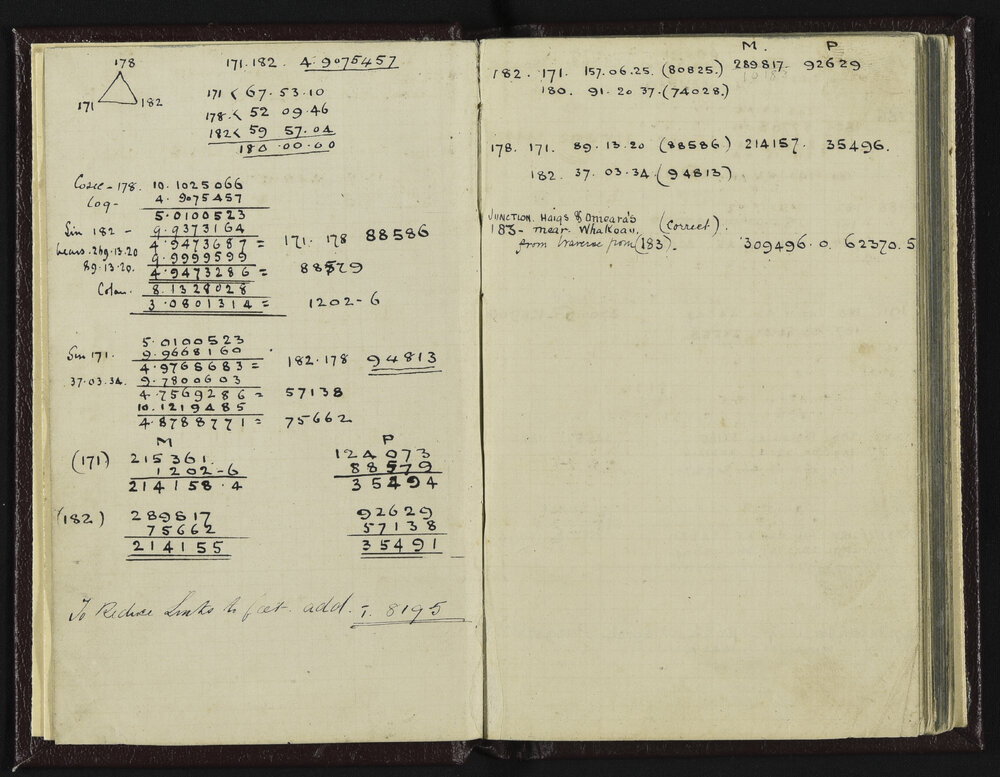 178
171 182
171.182. 4.9075457
171 < 67.53.10
178 < 52 09.46
182 < 59 57.04
180.00.00
Cosec-178. 10.1025066
Log- 4.9075457
5.0100523
Sin 182- 9.9373164
4.9473687 = 171.178 88586
bears. 269.13.20 9.9999599
89.13.20. 4.9473286 = 88579
Cotan. 8.1328028
3.0801314 = 1202-6
5.0100523
Sin 171. 9.9668160
4.9768683 = 182.178 94813
37.03.34. 9.7800603
4.7569286 = 57138
10.1219485
4.8788771 = 75662
M P
(171) 215361. 124073
1202-6 88579
214158.4 35494
(182) 289817 92629
75662 57138
214155 35491
To Reduce Links to feet. add. -. 8195
M. P
182. 171. 157.06.25. (80825.) 289817- 92629
180. 91.20 37.(74028.)
178. 171. 89.13.20 (88586) 214157. 35496.
182. 37.03.34.(94813)
JUNCTION. Haigs & Omeara's
183- near Whalkoau. (Correct).
from traverse from (183)- 309496.0. 62370.5